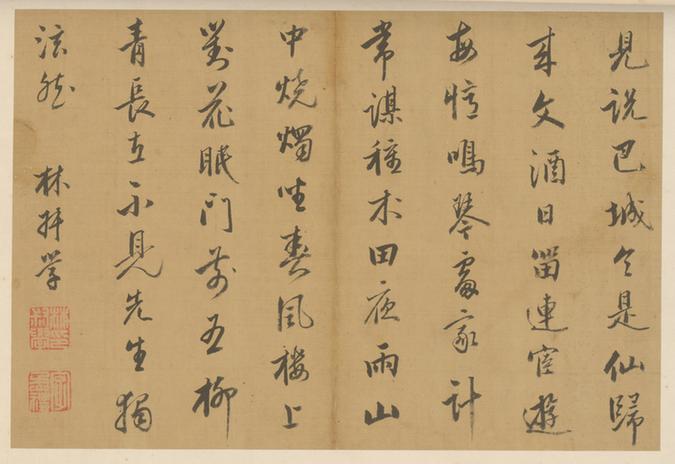 見説巴城令是仙歸
来文酒日留連宦遊
每憶鳴琴處家計
常謀種朮田夜雨山
中燒燭坐春風樓上
對花眠門前五柳
青長在不見先生獨
泫然 林拜學